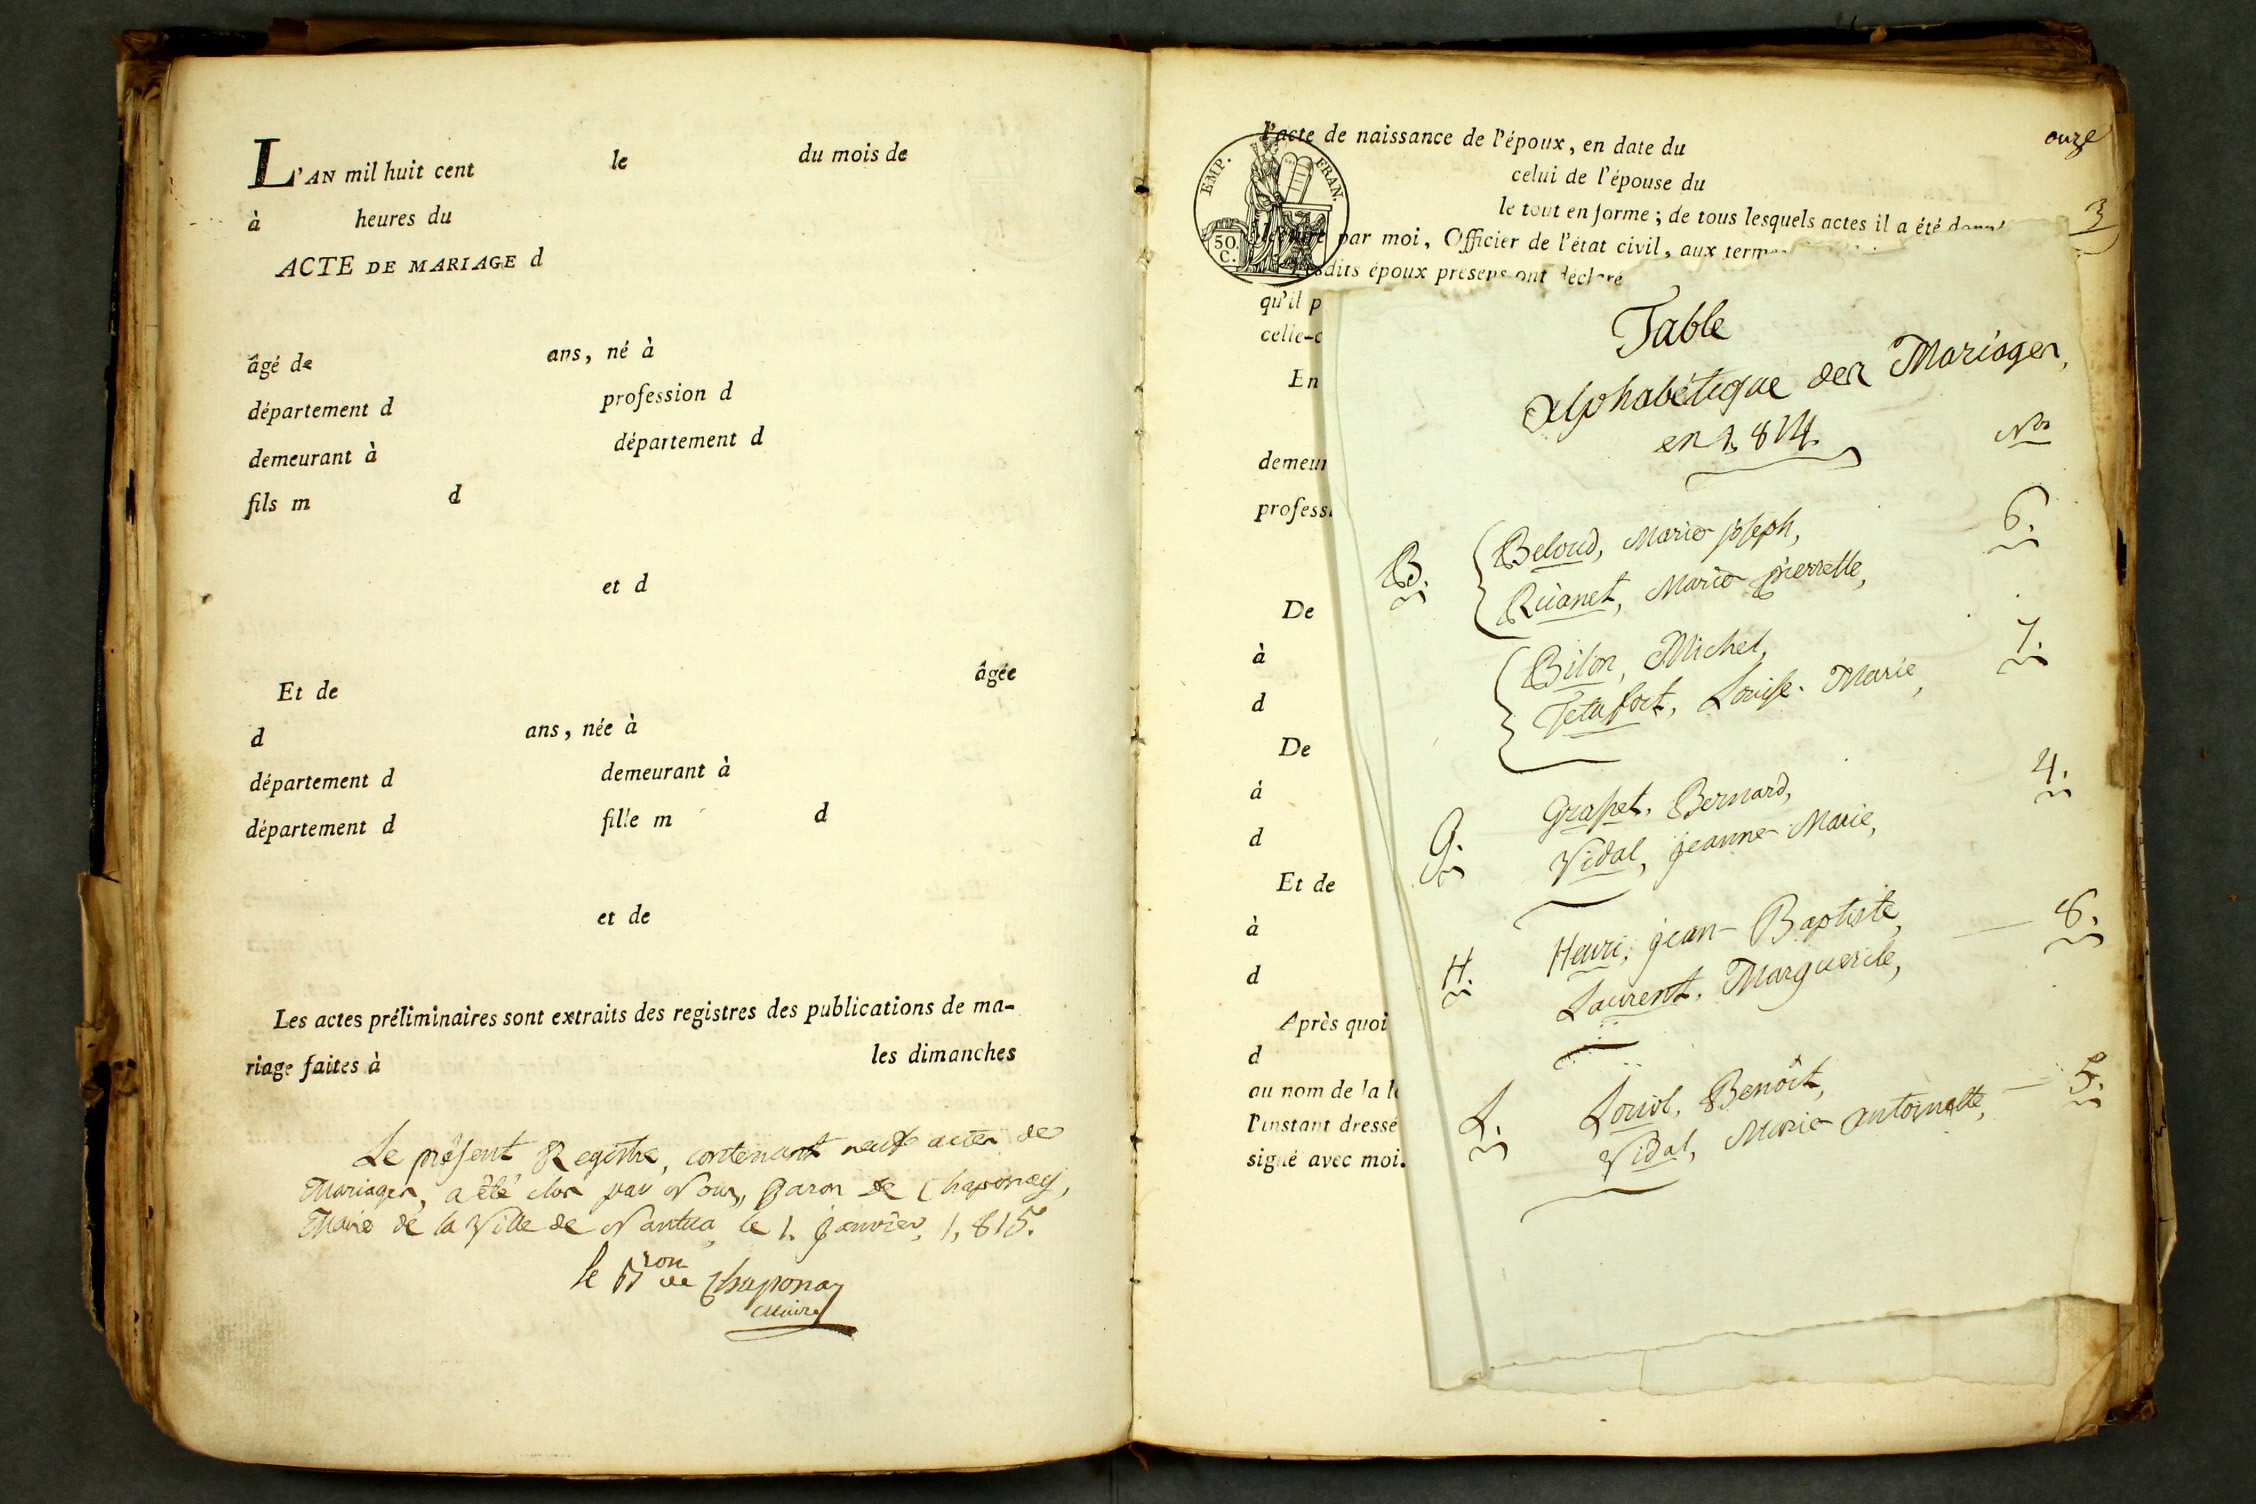 L'AN mil huit cent le du mois de
à heures du
ACTE DE MARIAGE d
âgé de ans, né à
département d profession d
demeurant à département d
fils m d
et d
Et de âgée
d ans, née à
département d demeurant à
département d fille m d
et de
Les actes préliminaires sont extraits des registres des publications de ma-
riage faites à les dimanches
Le présent Registre, contenant neuf actes de
Mariages, a été clos par Nous, Baron de Chaponay,
Maire de la Ville de Nantua, le 1. Janvier, 1,815.
le Bron de Chaponay
Maire
onze
l'acte de naissance de l'époux, en date du
celui de l'épouse du
le tout en forme; de tous lesquels actes il a été
par moi, Officier de l'état civil, aux
époux présens ont déclaré
EMP. FRAN.
50.
C.
3
qu'il p
celle-c
En
demeur
profess
De
à
d
De
à
d
Et de
à
d
Après quoi
d
au nom de la
l'instant dressé
signé avec moi.
Table
alphabétique des Mariages,
en 1,814.
Nos
B. Beloud, Marie joseph, 6.
Ruanet, Marie pierrette,
Bilon, Michel, 7.
Tetafort, Louise Marie,
G. Grapet, Bernard, 4.
Vidal, jeanne Marie,
H. Henri, jean Baptiste, 8.
Laurent, Marguerite,
L. Louvl, Benôit, 5.
Vidal, Marie antoinette,